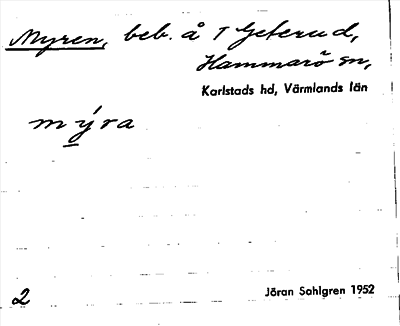 Myren, beb. å 1 Geterud,
Hammarö sn,
Karlstads hd, Värmlands län
mýra
2
Jöran Sahlgren 1952